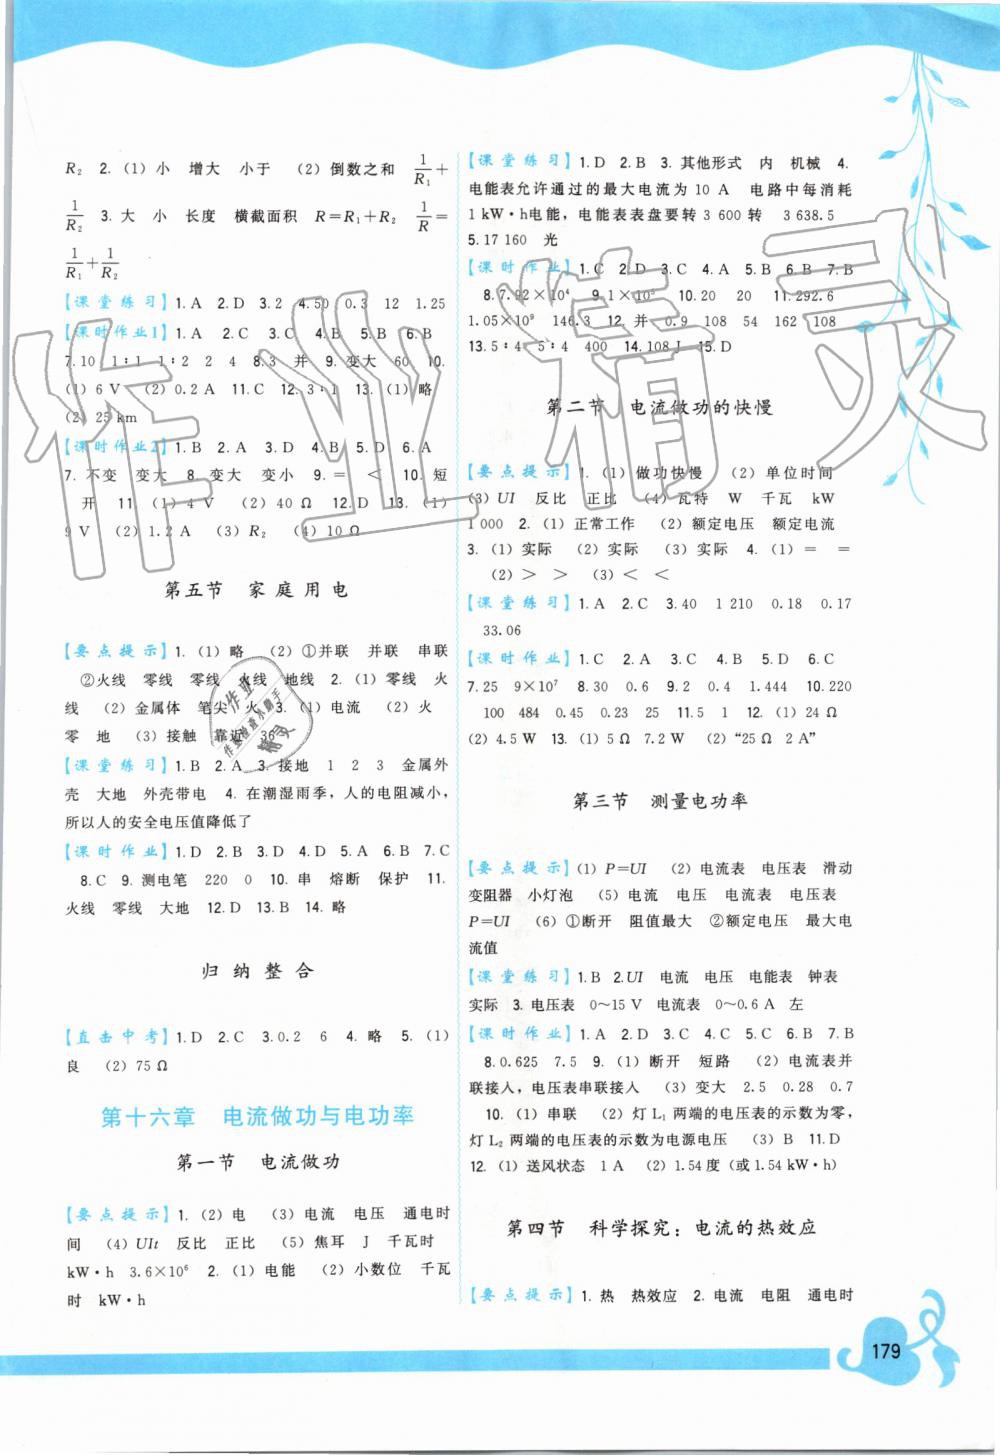 R₂ 2.(1)小 增大 小于 (2)倒数之和 1/R₁+
1/R₂ 3.大 小 长度 横截面积 R=R₁+R₂ 1/R=
1/R₁+1/R₂
【课堂练习】1.A 2.D 3.2 4.50 0.3 12 1.25
【课时作业1】1.A 2.C 3.C 4.B 5.B 6.B
7.10 1∶1 1∶2 2 4 8.3 并 9.变大 60 10.
(1)6 V (2)0.2 A 11.C 12.3∶1 13.(1)略
(2)25 km
【课时作业2】1.B 2.A 3.D 4.B 5.D 6.A
7.不变 变大 8.变大 变小 9.= < 10.短
开 11.(1)4 V (2)40 Ω 12.D 13.(1)
9 V (2)1.2 A (3)R₂ (4)10 Ω
第五节 家庭用电
【要点提示】1.(1)略 (2)①并联 并联 串联
②火线 零线 零线 火线 地线 2.(1)零线 火
线 (2)金属体 笔尖 火 3.(1)电流 (2)火
零 地 (3)接触 靠近 36
【课堂练习】1.B 2.A 3.接地 1 2 3 金属外
壳 大地 外壳带电 4.在潮湿雨季，人的电阻减小，
所以人的安全电压值降低了
【课时作业】1.D 2.B 3.D 4.D 5.A 6.B 7.C
8.C 9.测电笔 220 0 10.串 熔断 保护 11.
火线 零线 大地 12.D 13.B 14.略
归纳整合
【直击中考】1.D 2.C 3.0.2 6 4.略 5.(1)
良 (2)75 Ω
第十六章 电流做功与电功率
第一节 电流做功
【要点提示】1.(2)电 (3)电流 电压 通电时
间 (4)UIt 反比 正比 (5)焦耳 J 千瓦时
kW·h 3.6×10⁶ 2.(1)电能 (2)小数位 千瓦
时 kW·h
【课堂练习】1.D 2.B 3.其他形式 内 机械 4.
电能表允许通过的最大电流为 10 A 电路中每消耗
1 kW·h电能，电能表表盘要转 3 600 转 3 638.5
5.17 160 光
【课时作业】1.C 2.D 3.C 4.A 5.B 6.B 7.B
8.7.92×10⁴ 9.1×10⁵ 10.20 20 11.292.6
1.05×10⁹ 146.3 12.并 0.9 108 54 162 108
13.5∶4 5∶4 400 14.108 J 15.D
第二节 电流做功的快慢
【要点提示】1.(1)做功快慢 (2)单位时间
(3)UI 反比 正比 (4)瓦特 W 千瓦 kW
1 000 2.(1)正常工作 (2)额定电压 额定电流
3.(1)实际 (2)实际 (3)实际 4.(1)= =
(2)> > (3)< <
【课堂练习】1.A 2.C 3.40 1 210 0.18 0.17
33.06
【课时作业】1.C 2.A 3.B 4.A 5.D 6.C
7.25 9×10⁷ 8.30 0.6 9.2 0.4 1.444 10.220
100 484 0.45 0.23 25 11.5 1 12.(1)24 Ω
(2)4.5 W 13.(1)5 Ω 7.2 W (2)“25 Ω 2 A”
第三节 测量电功率
【要点提示】(1)P=UI (2)电流表 电压表 滑动
变阻器 小灯泡 (5)电流 电压 电流表 电压表
P=UI (6)①断开 阻值最大 ②额定电压 最大电
流值
【课堂练习】1.B 2.UI 电流 电压 电能表 钟表
实际 3.电压表 0～15 V 电流表 0～0.6 A 左
【课时作业】1.A 2.D 3.C 4.C 5.C 6.B 7.B
8.0.625 7.5 9.(1)断开 短路 (2)电流表并
联接入，电压表串联接入 (3)变大 2.5 0.28 0.7
10.(1)串联 (2)灯 L₁ 两端的电压表的示数为零，
灯 L₂ 两端的电压表的示数为电源电压 (3)B 11.D
12.(1)送风状态 1 A (2)1.54 度(或1.54 kW·h)
第四节 科学探究：电流的热效应
【要点提示】1.热 热效应 2.电流 电阻 通电时
179
作业精灵